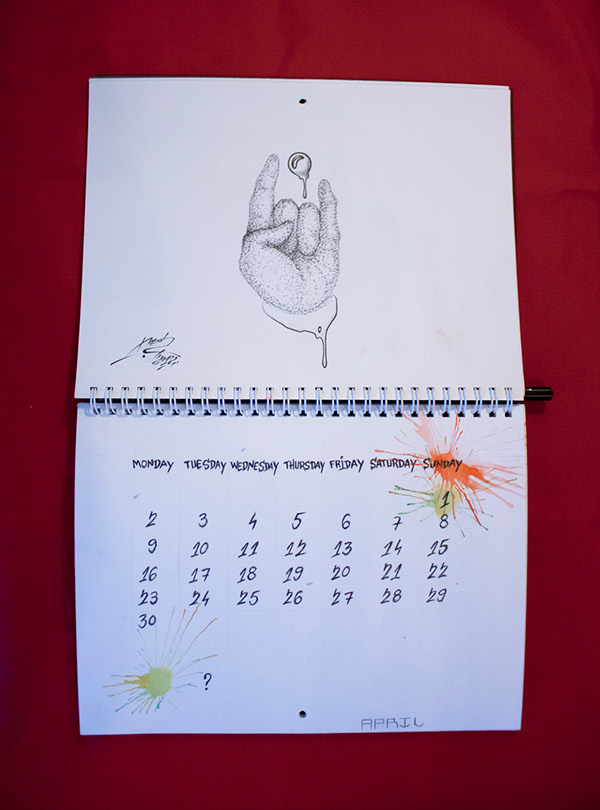 MONDAY TUESDAY WEDNESDAY THURSDAY FRIDAY SATURDAY SUNDAY
1
2 3 4 5 6 7 8
9 10 11 12 13 14 15
16 17 18 19 20 21 22
23 24 25 26 27 28 29
30
?
APRIL